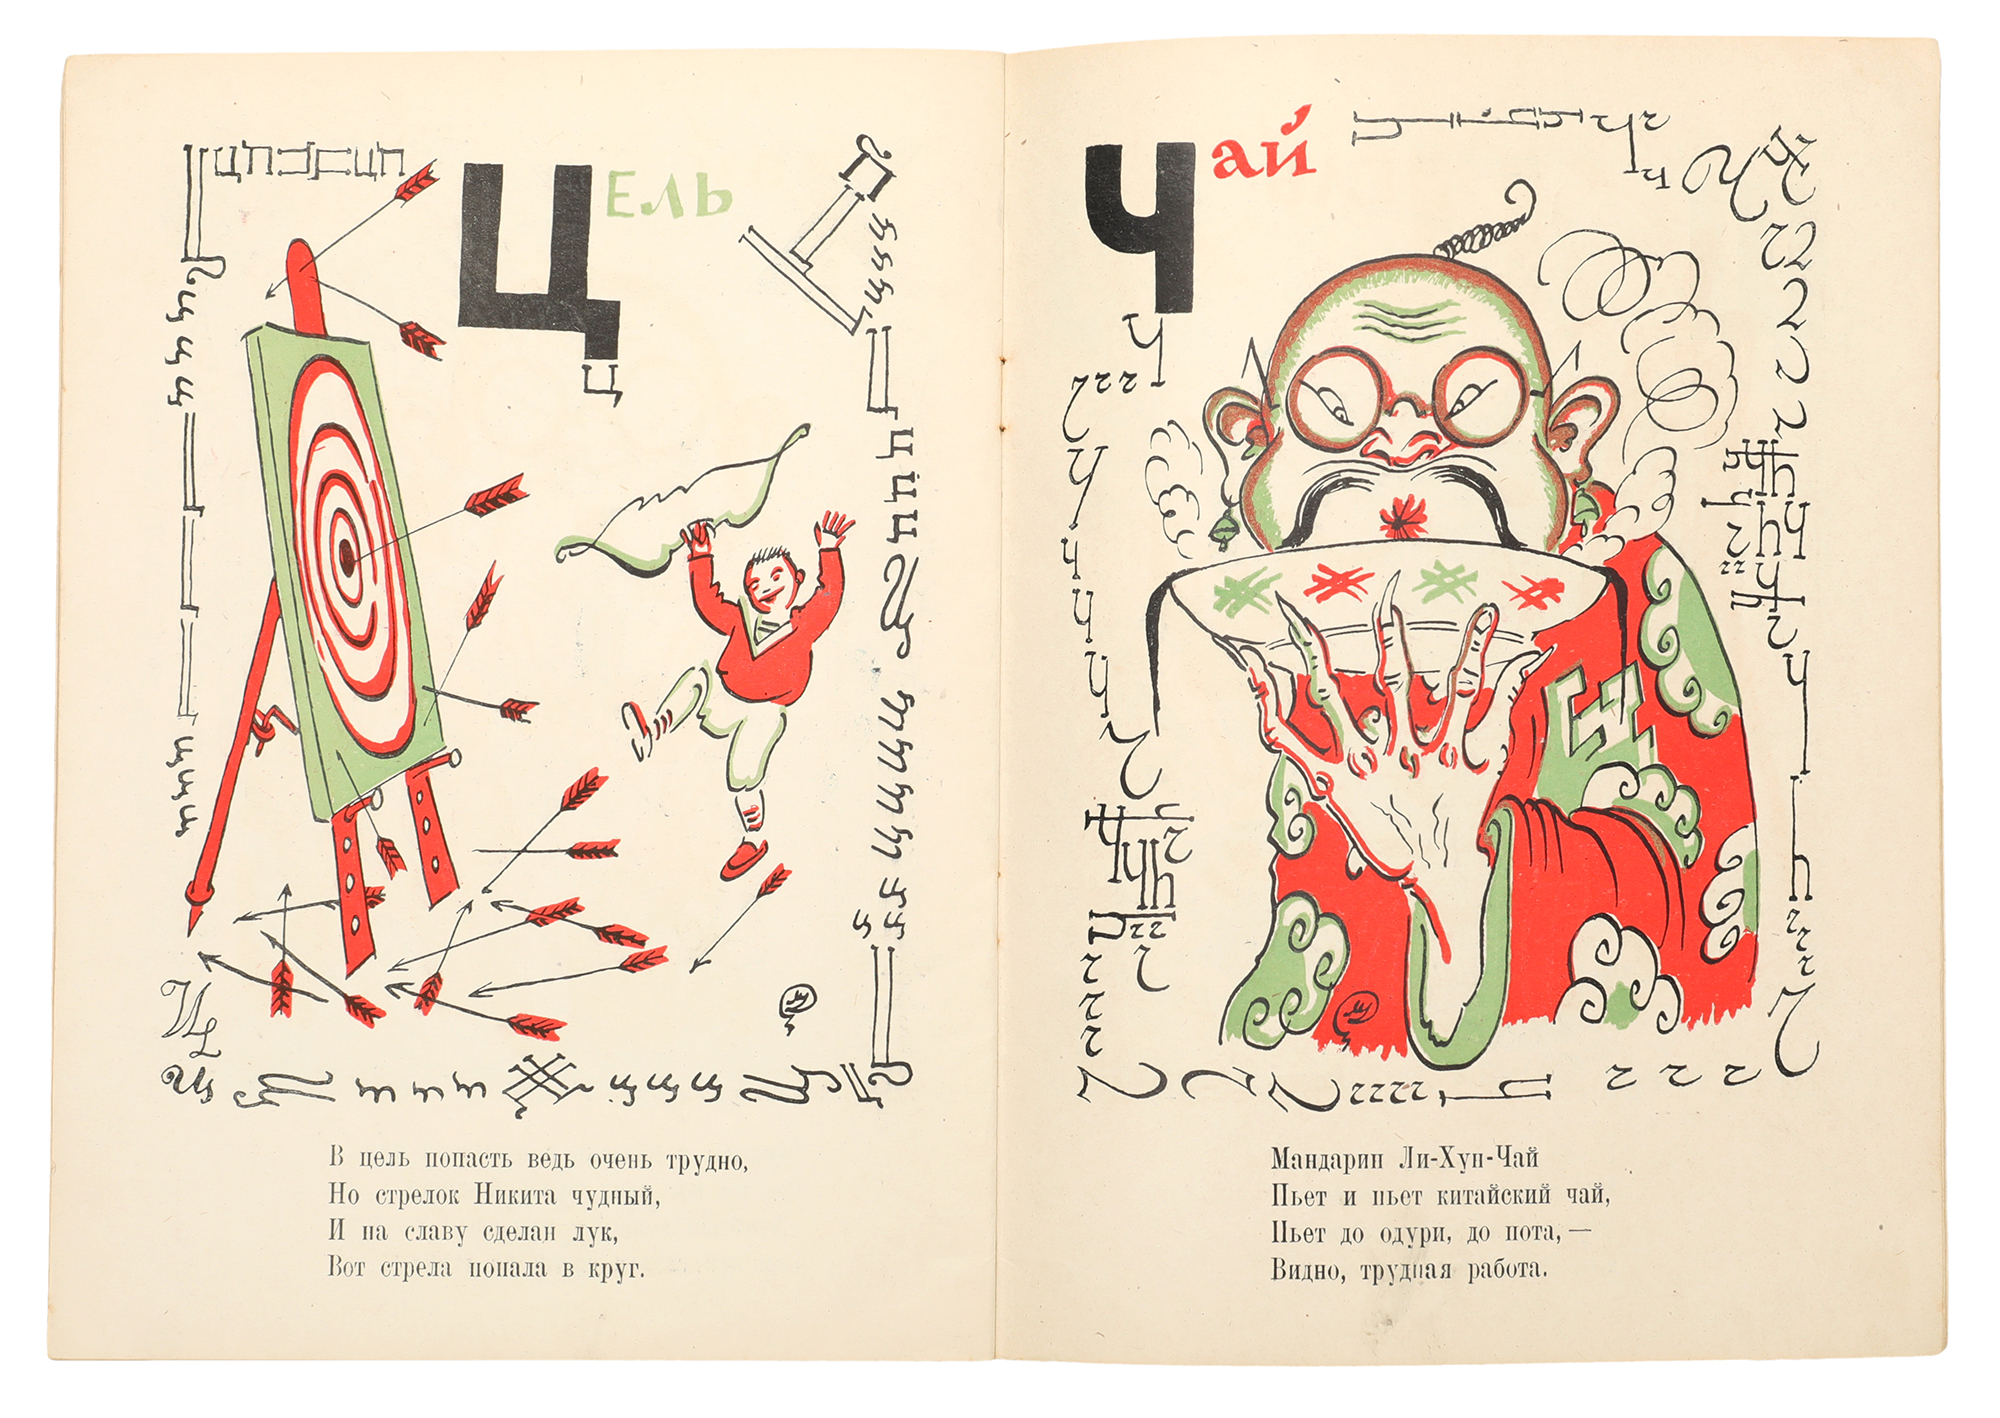 Цель
В цель попасть ведь очень трудно,
Но стрелок Никита чудный,
И на славу сделан лук,
Вот стрела попала в круг.
Чай
Мандарин Ли-Хун-Чай
Пьет и пьет китайский чай,
Пьет до одури, до пота, —
Видно, трудная работа.